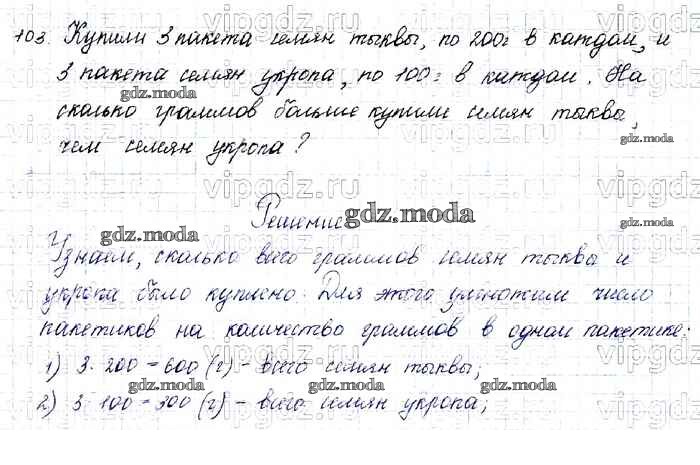 103. Купили 3 пакета семян тыквы, по 200г в каждом, и
3 пакета семян укропа, по 100г в каждом. На
сколько граммов больше купили семян тыквы,
чем семян укропа?
Решение
Узнаем, сколько всего граммов семян тыквы и
укропа было куплено. Для этого умножим число
пакетиков на количество граммов в одном пакетике:
1) 3·200=600 (г) - всего семян тыквы;
2) 3·100=300 (г) - всего семян укропа;
vipgdz.ru
gdz.moda